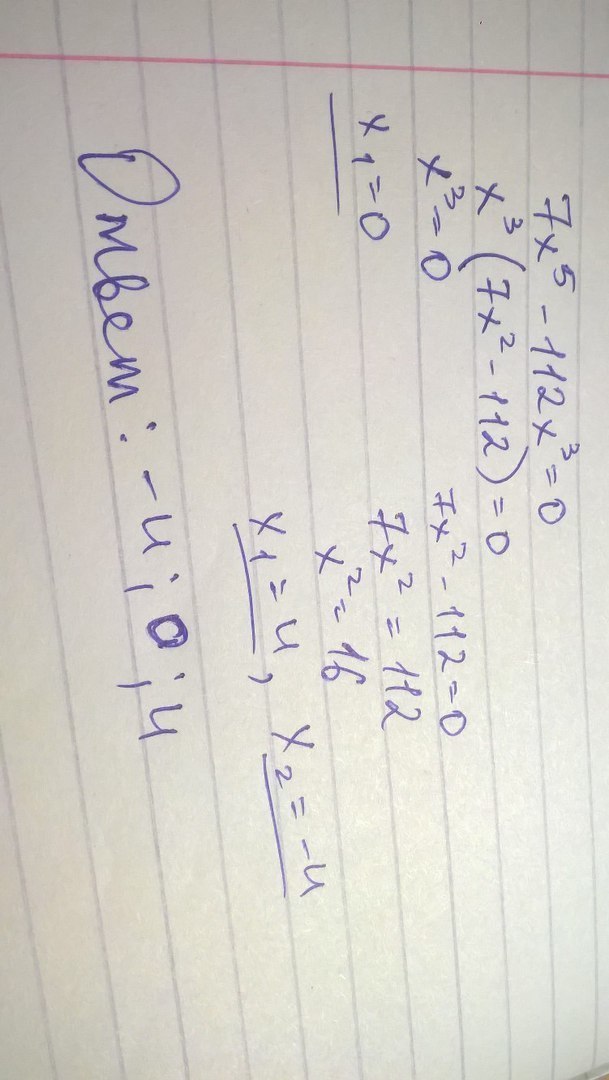 7x⁵ - 112x³ = 0
x³(7x² - 112) = 0
x³ = 0
x₁ = 0
7x² - 112 = 0
7x² = 112
x² = 16
x₁ = 4, x₂ = -4
Ответ: -4; 0; 4